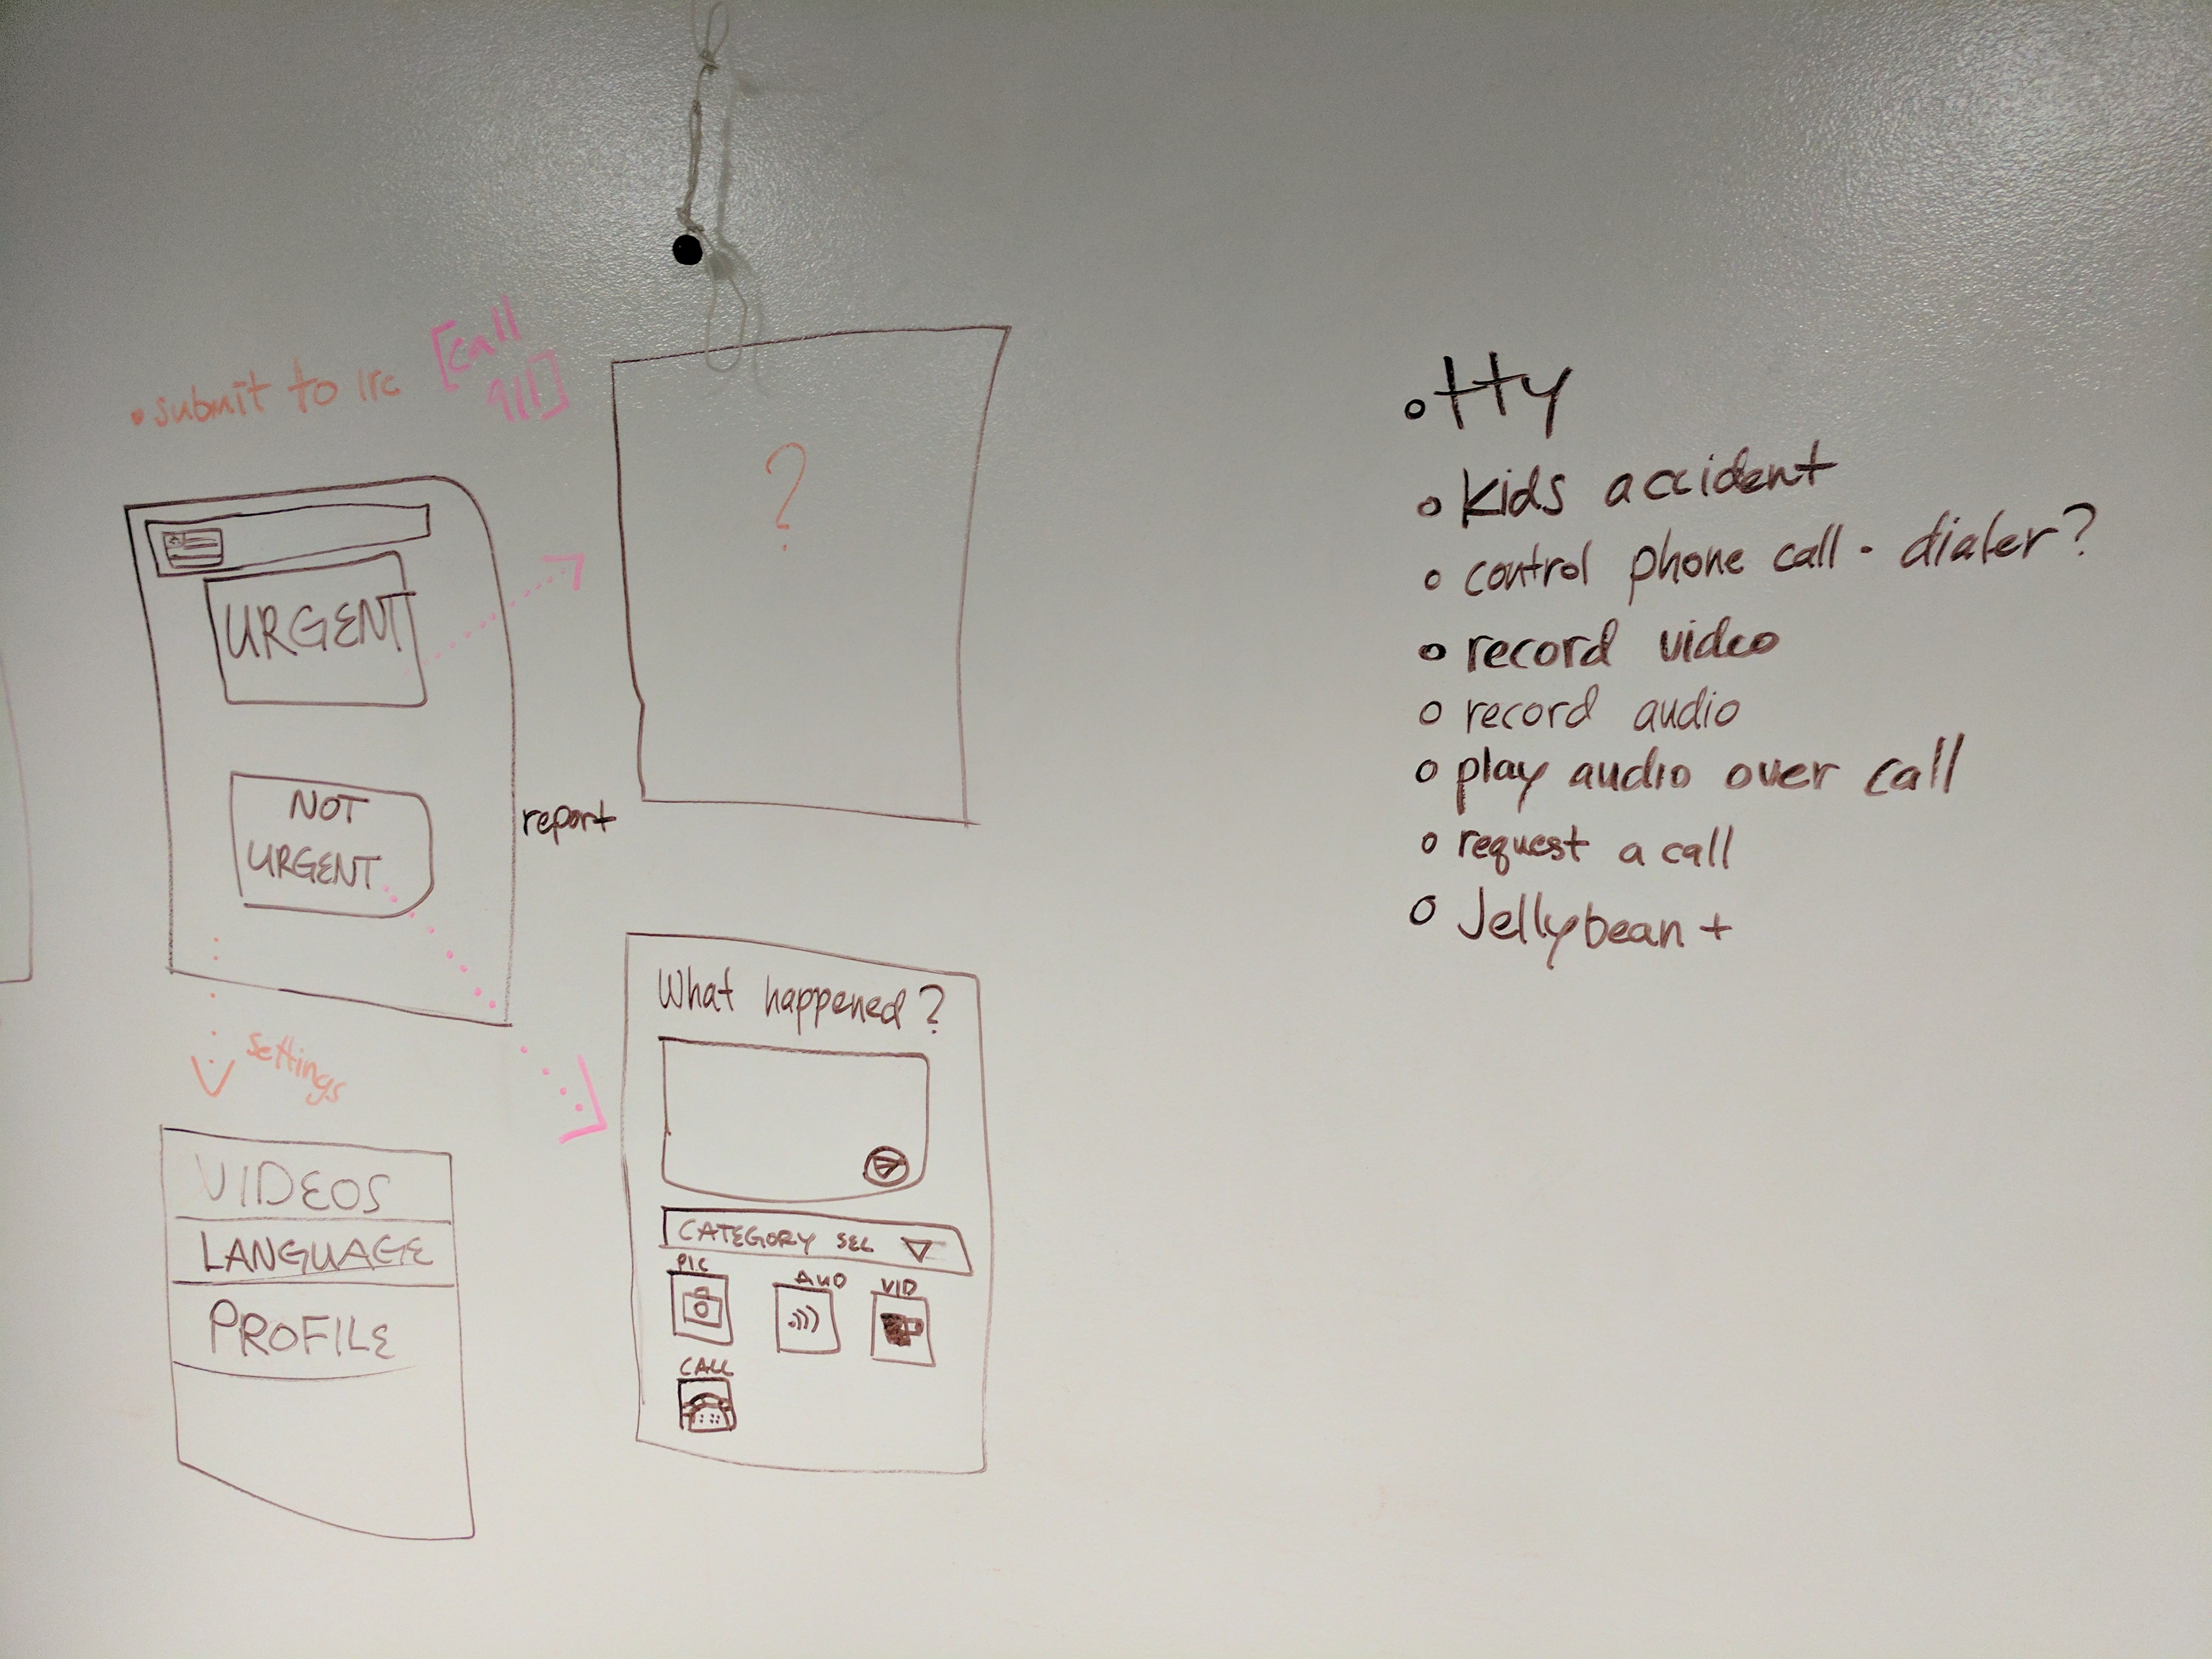 • submit to irc [call
911]
URGENT
NOT
URGENT
report
settings
VIDEOS
LANGUAGE
PROFILE
?
What happened?
CATEGORY SEL
PIC
AUD
VID
CALL
• tty
• Kids accident
• control phone call - dialer?
• record video
• record audio
• play audio over call
• request a call
• Jellybean +